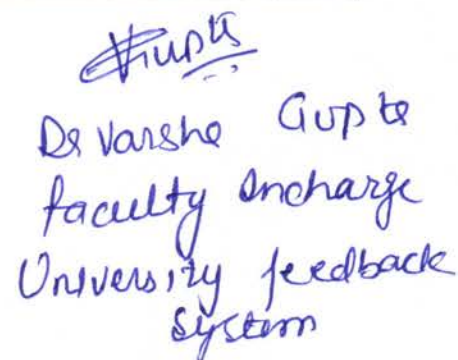 VGupta
Dr Varsha Gupta
Faculty Incharge
University feedback
System